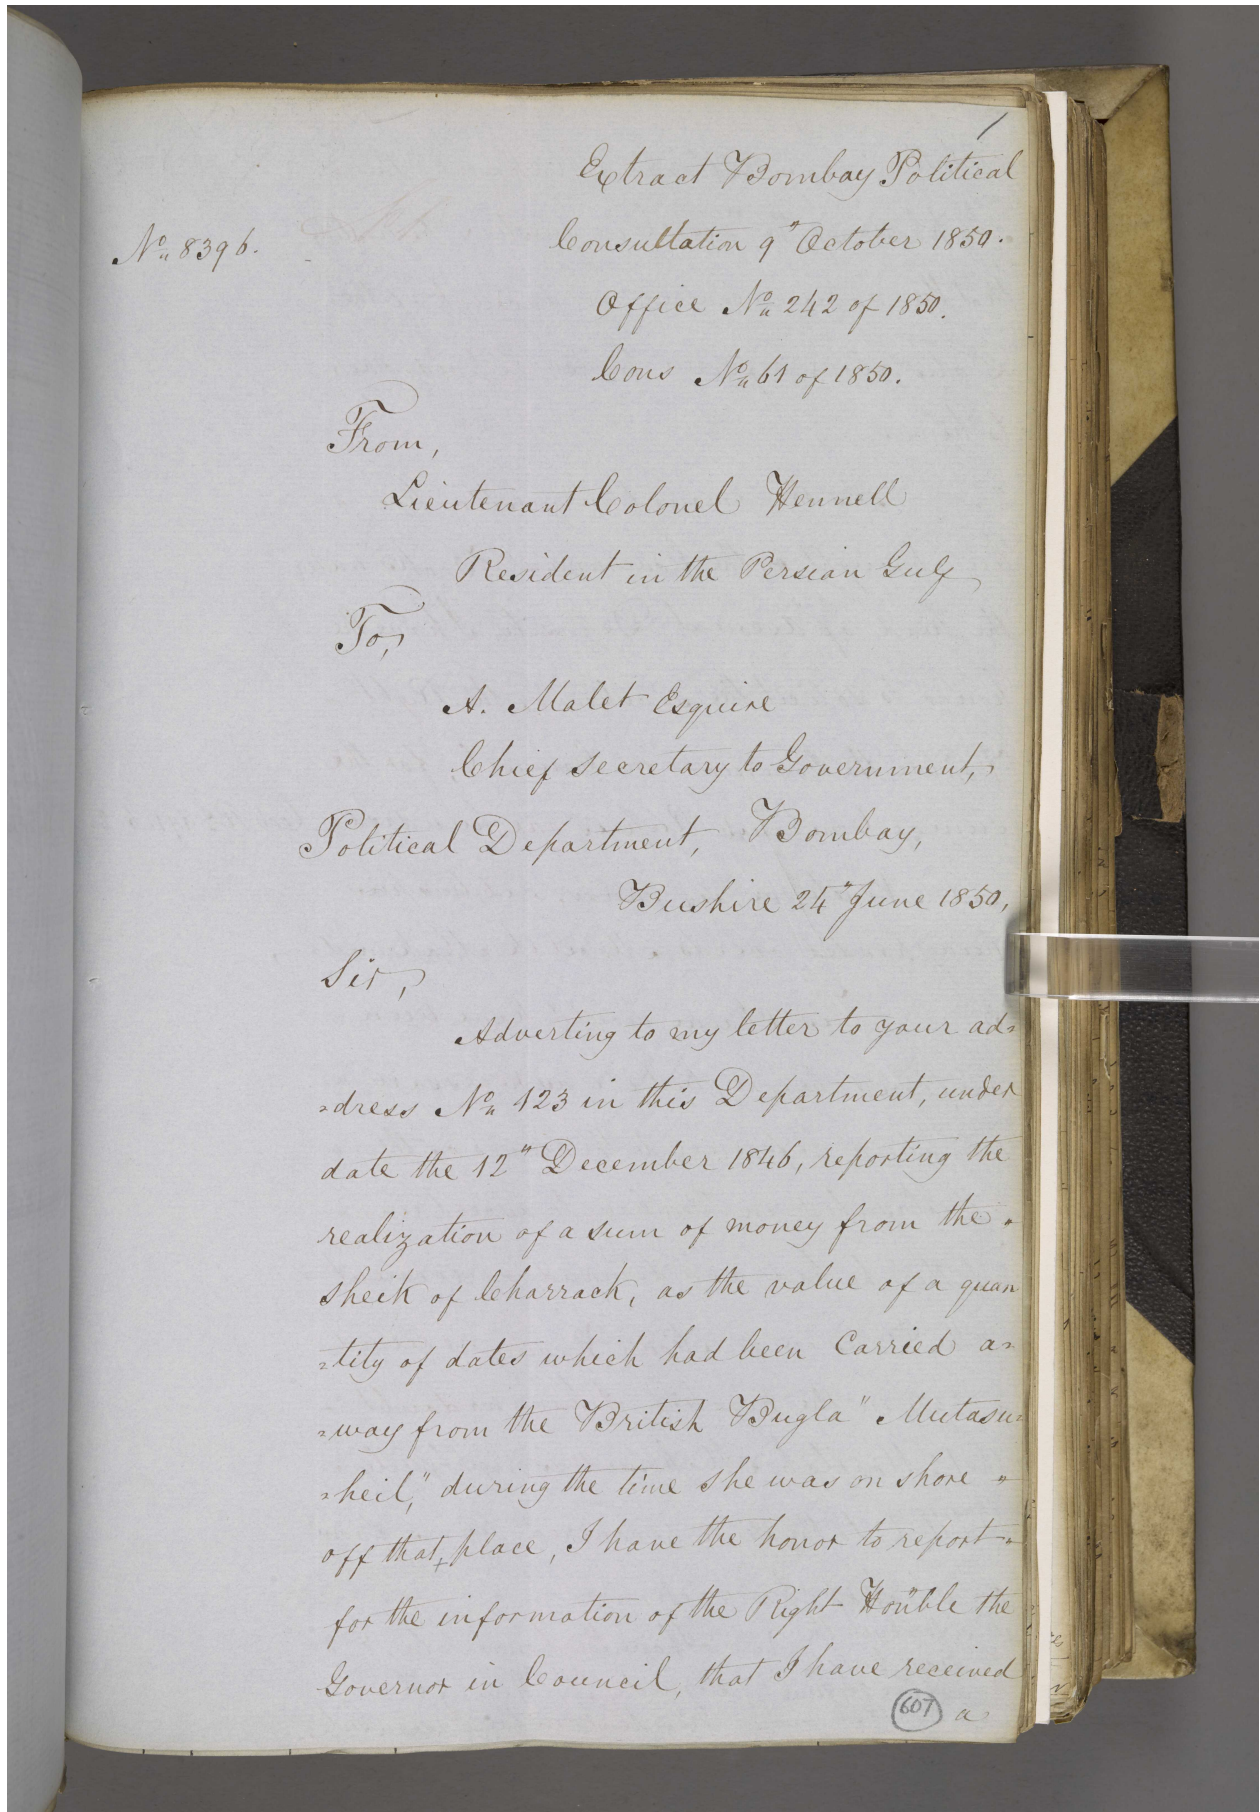 1
Extract Bombay Political
No. 8396.
Consultation 9" October 1850.
Office No. 242 of 1850.
Cons No. 61 of 1850.
From,
Lieutenant Colonel Hennell
Resident in the Persian Gulf
To,
A. Malet Esquire
Chief Secretary to Government,
Political Department, Bombay,
Bushire 24" June 1850,
Sir,
Adverting to my letter to your ad=
=dress No. 123 in this Department, under
date the 12" December 1846, reporting the
realization of a sum of money from the "
Sheik of Charrack, as the value of a quan
=tity of dates which had been Carried a=
=way from the British Bugla "Mutasu=
=heil," during the time she was on shore "
off that place, I have the honor to report "
for the information of the Right Hon'ble the
Governor in Council, that I have received
607 a